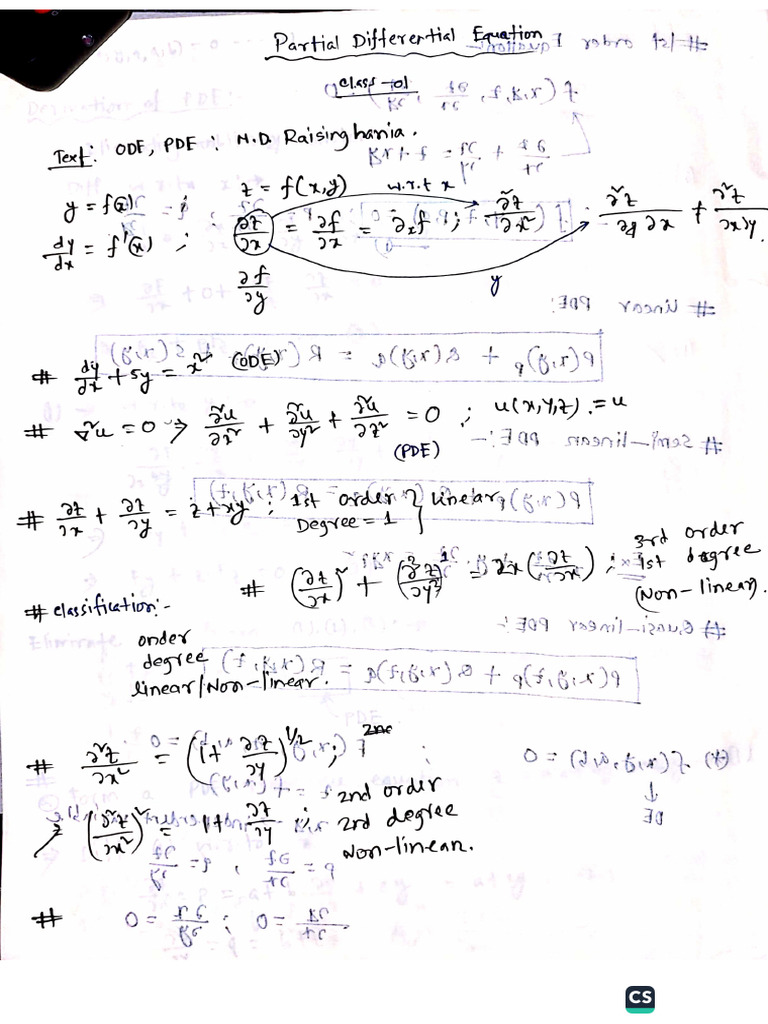 Partial Differential Equation
Class-01
Text: ODE, PDE : M.D. Raisinghania.
y = f(x) ; z = f(x,y) w.r.t x
dy/dx = f'(x) ; ∂z/∂x = ∂f/∂x = ∂ₓf ; ∂²z/∂x² ; ∂²z/∂y∂x ≠ ∂²z/∂x∂y
∂f/∂y y
# dy/dx + 5y = x² (ODE)
# ∇²u = 0 ⇒ ∂²u/∂x² + ∂²u/∂y² + ∂²u/∂z² = 0 ; u(x,y,z) = u
(PDE)
# ∂z/∂x + ∂z/∂y = z + xy ; 1st order } linear
Degree = 1
# (∂z/∂x)² + ∂³z/∂y³ = 2x(∂z/∂x) ; 3rd order
1st degree
(Non-linear).
# classification:-
order
degree
linear/Non-linear.
# ∂²z/∂x² = (1 + ∂z/∂y)^1/2 ;
⇒ (∂²z/∂x²)² = 1 + ∂z/∂y ; 2nd order
2nd degree
Non-linear.
#
CS